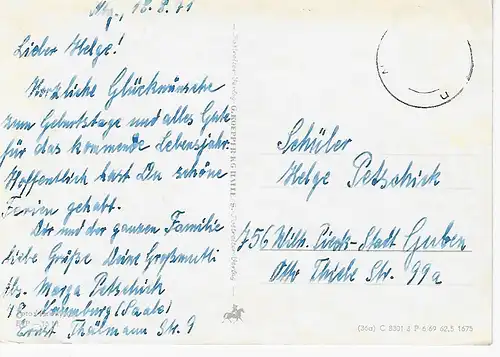 Nbg., 18.8.71
Lieber Helge!
Herzliche Glückwünsche
zum Geburtstage und alles Gute
für das kommende Lebensjahr.
Hoffentlich hast Du schöne
Ferien gehabt.
Dir und der ganzen Familie
liebe Grüße Deine Großmutti
Abs. Marga Petschick
48 Naumburg (Saale)
Ernst Thälmann Str. 9
Schüler
Helge Petschick
756 Wilh.-Piecks-Stadt Guben
Otto Thiele Str. 99a
(36a) C 8331 d P 6/69 62,5 1675